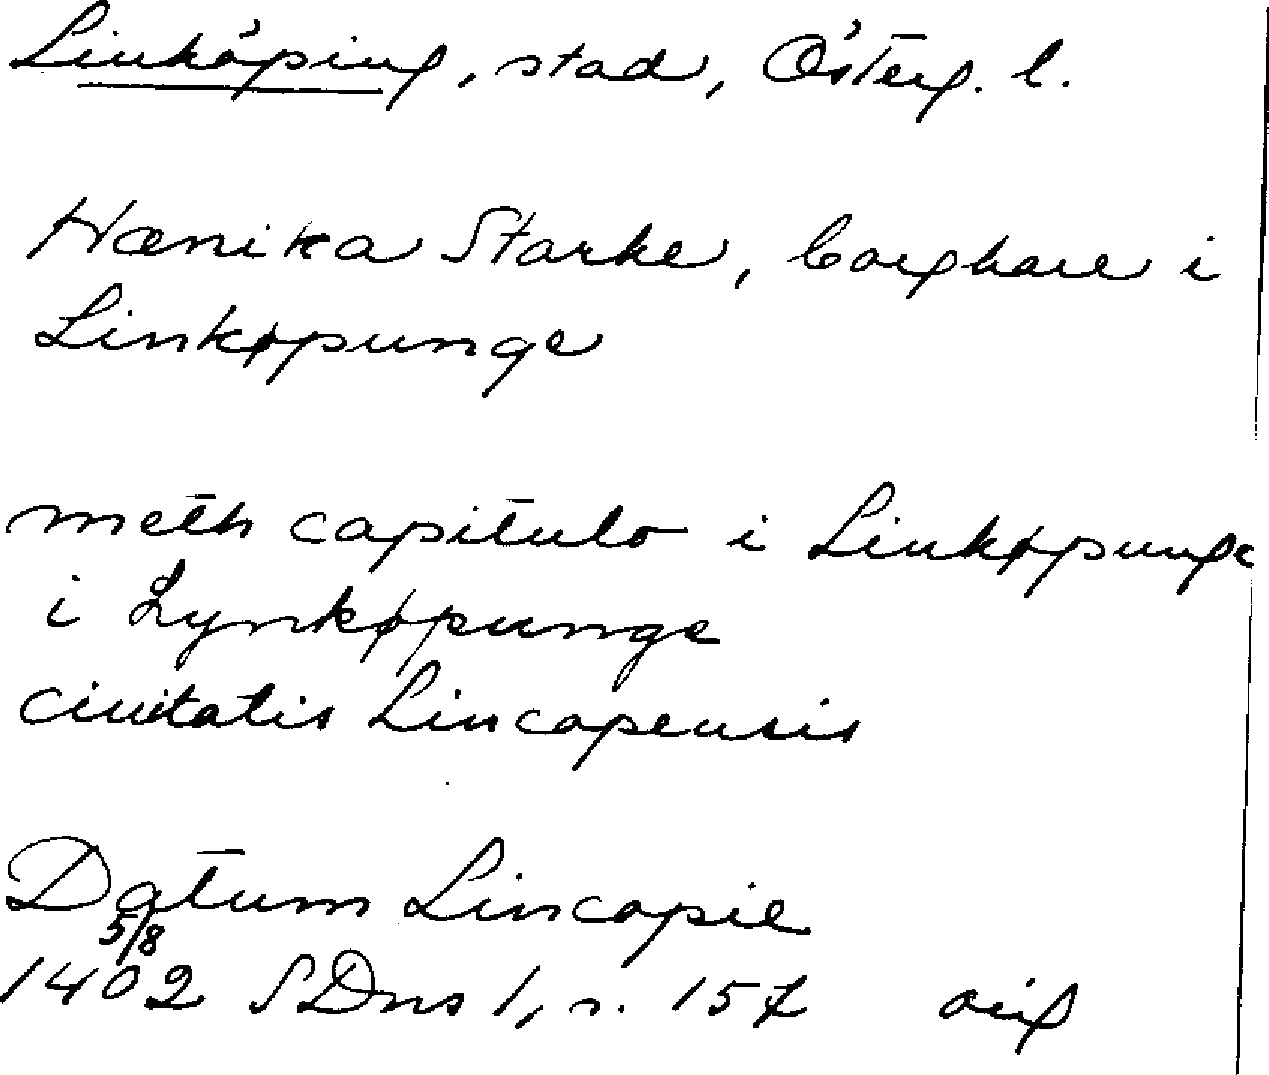 Linköping, stad, Österg. l.
Hænika Starke, borghare i
Linkøpunge
meth capitulo i Linkøpunge
i Lynkøpunge
ciuitatis Lincopensis
Datum Lincopie
5/8
1402 SDns 1, s. 157 orig